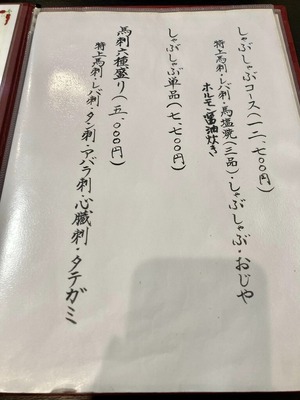 しゃぶしゃぶコース(一二、七〇〇円)
特上馬刺・レバ刺・馬塩焼(三品)・しゃぶしゃぶ・おじや
ホルモン醤油炊き
しゃぶしゃぶ単品(七、七〇〇円)
馬刺六種盛り(五、〇〇〇円)
特上馬刺・レバ刺・タン刺・アバラ刺・心臓刺・タテガミ